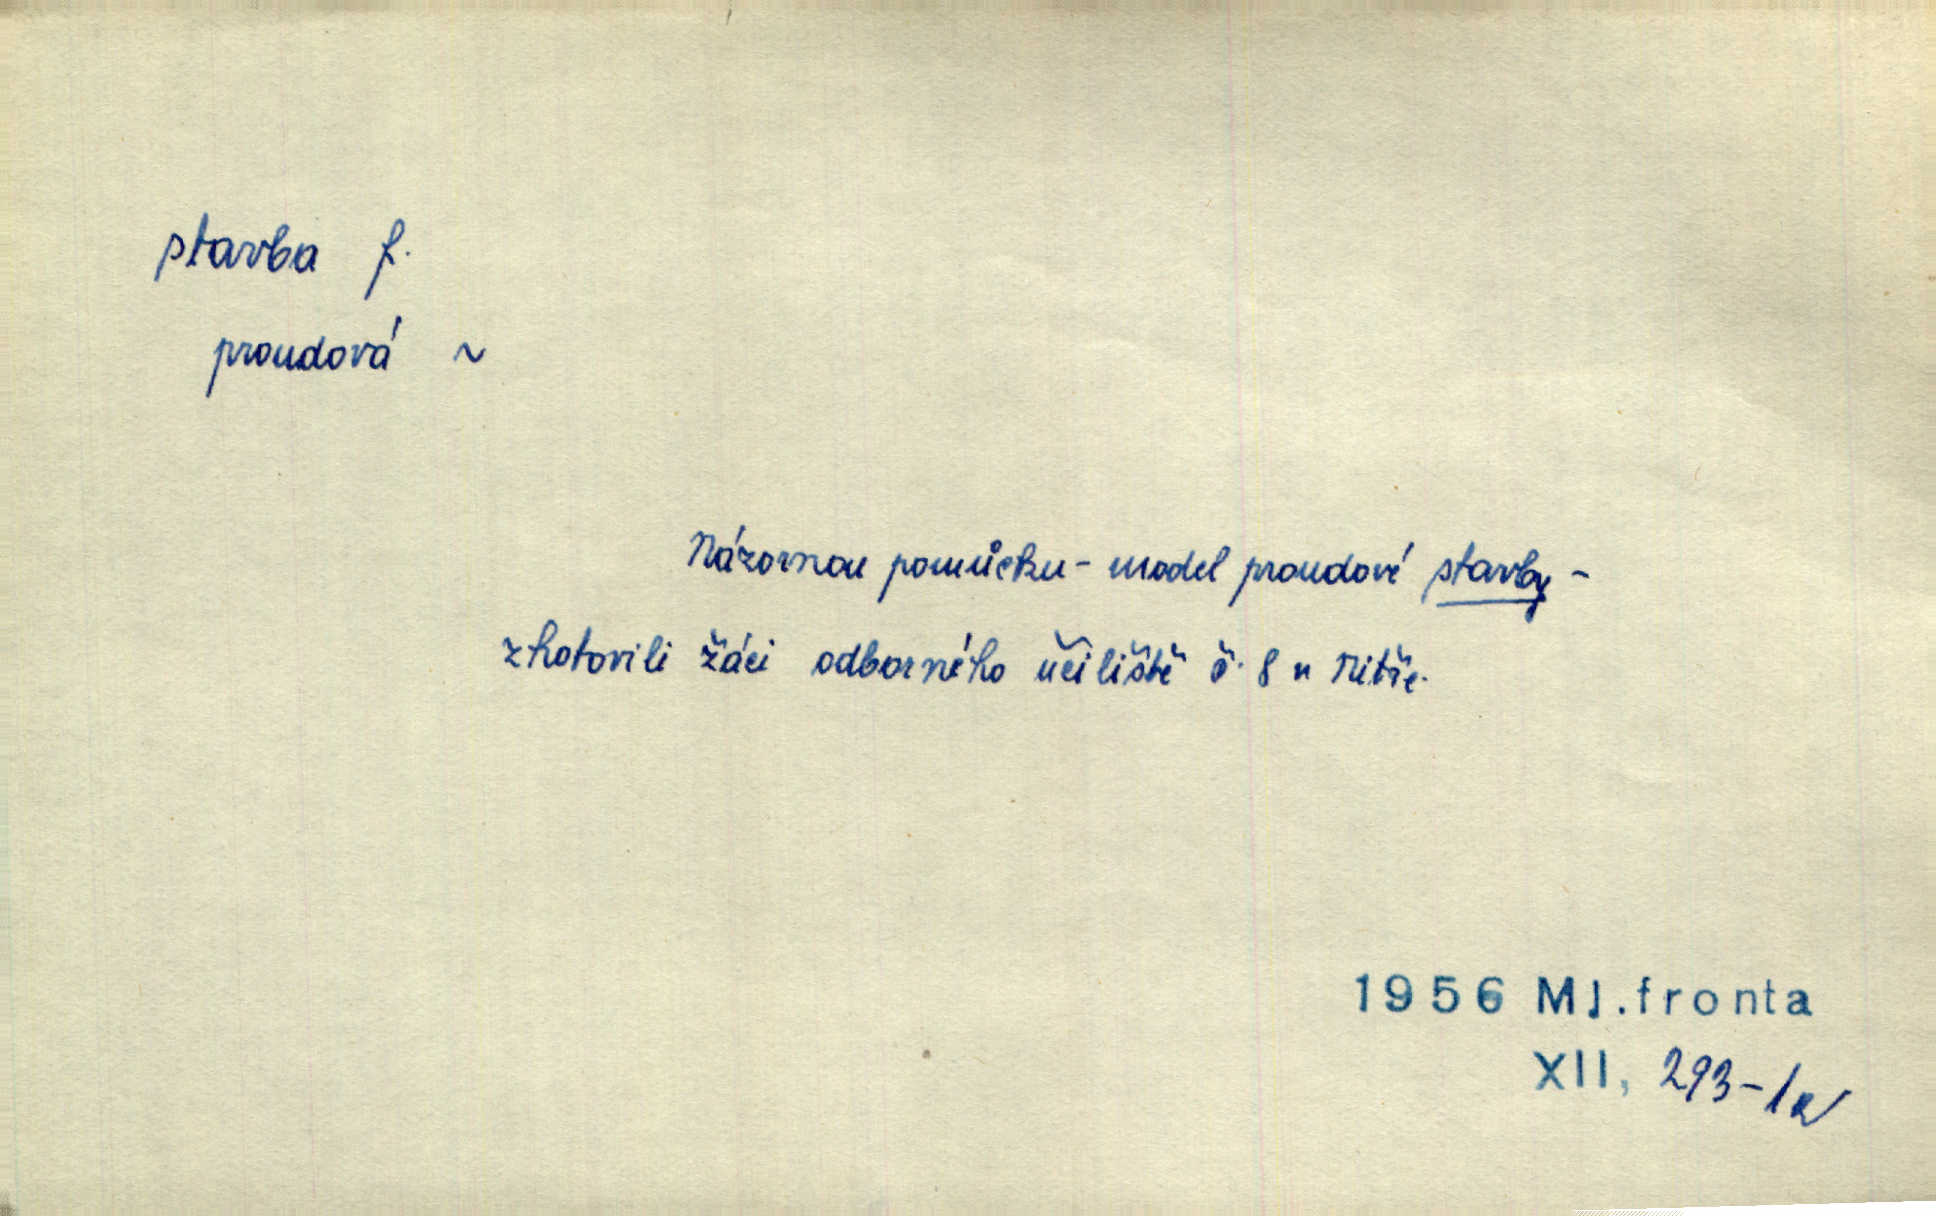 stavba f.
proudová ~
Názornou pomůcku - model proudové stavby -
zhotovili žáci odborného učiliště č. 8 v Nitře.
1956 Ml. fronta
XII, 293-1